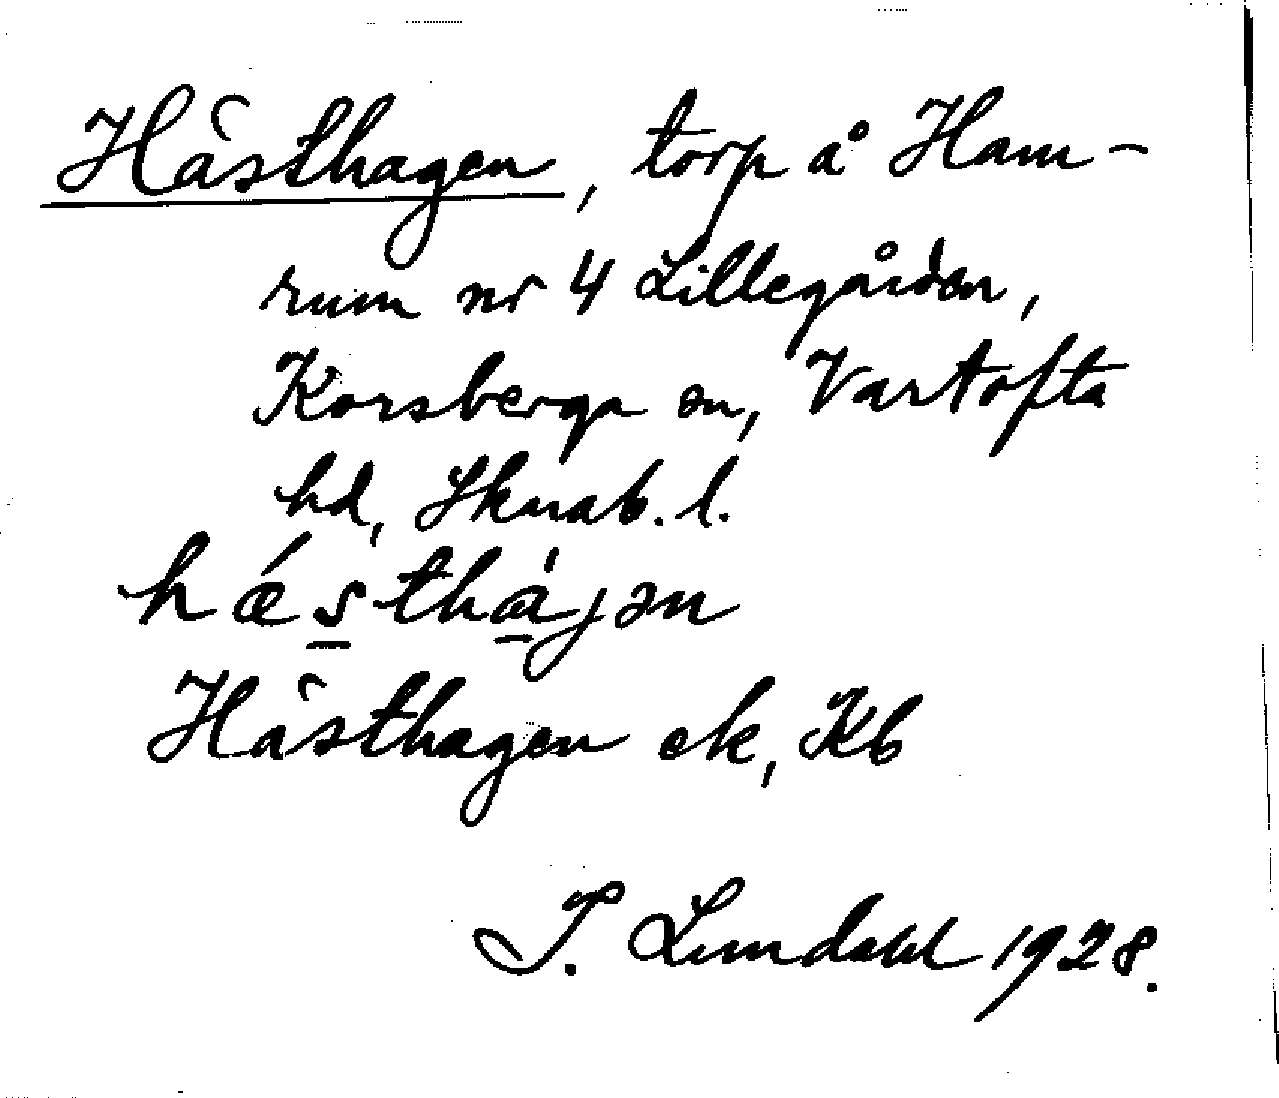 Hästhagen, torp å Ham-
rum nr 4 Lillegården,
Korsberga sn, Vartofta
hd, Skarab. l.
hǽsthàjən
Hästhagen ek, Kb
Lundahl 1928.